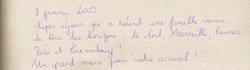 3 janvier 2009
super séjour qui a réuni une famille venue
de tous les horizons : le Nord, Marseille, Rennes
Paris et Luxembourg !
Un grand merci pour votre accueil !